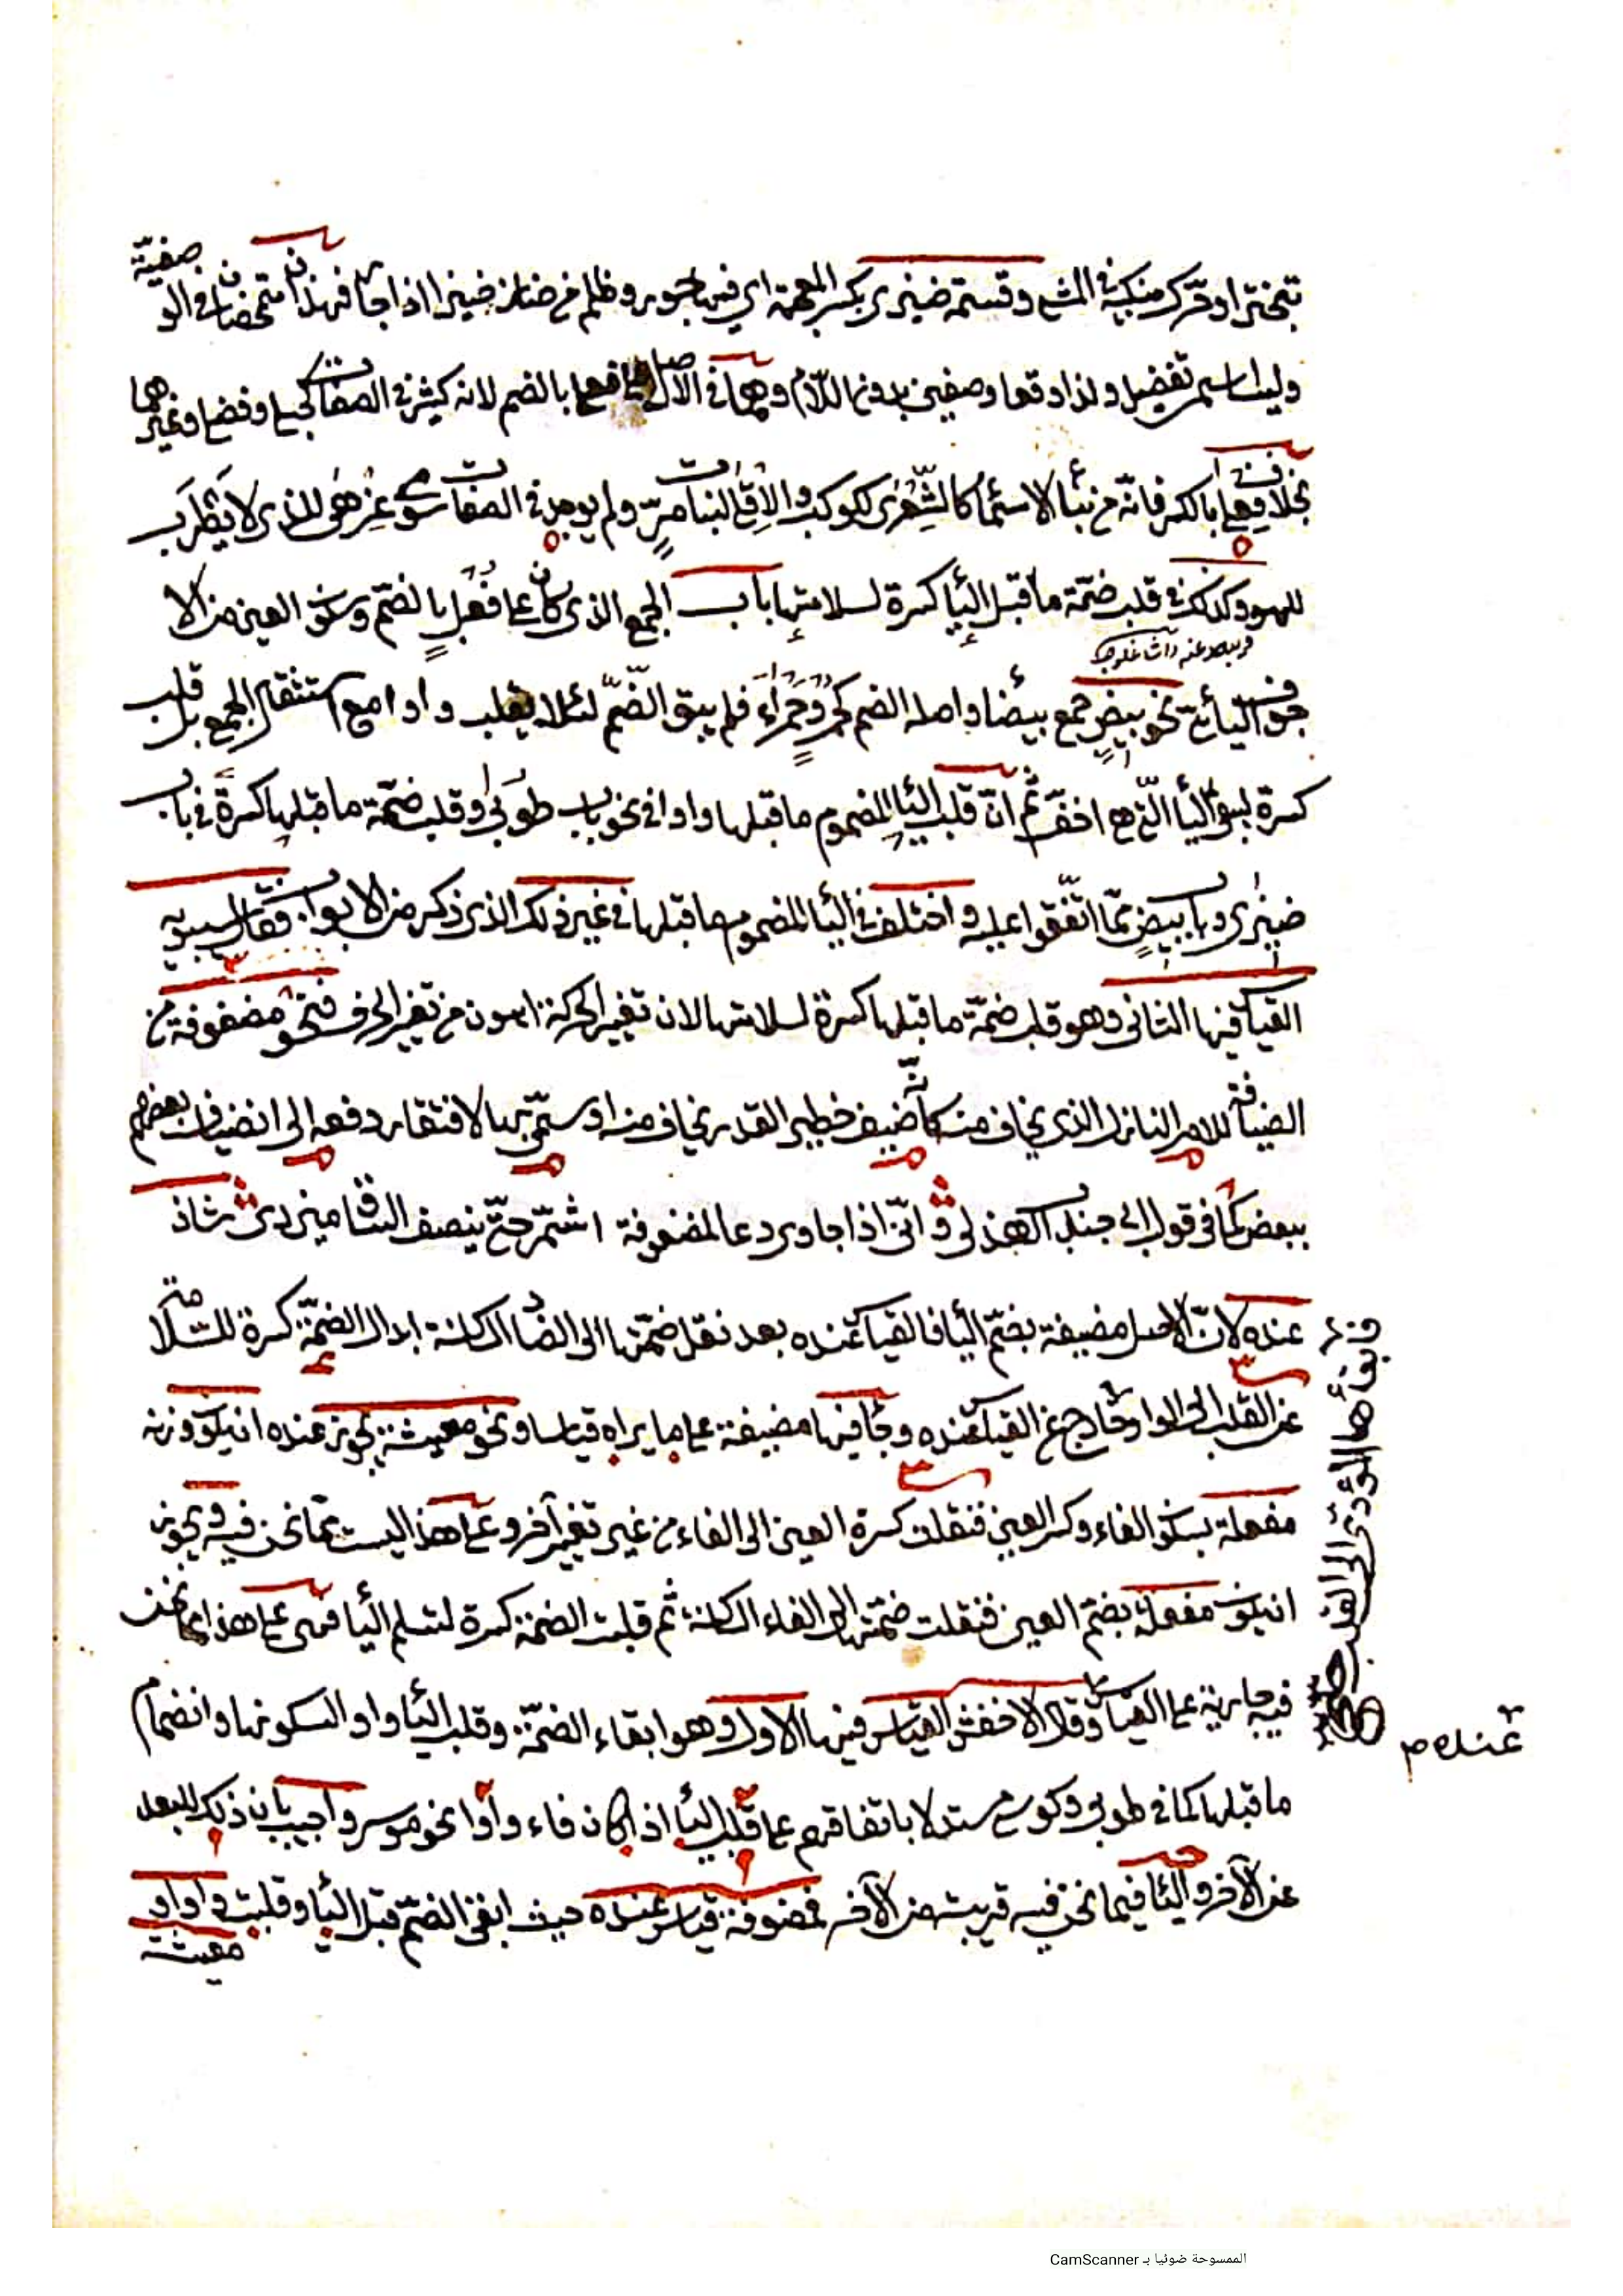 تبختر او حرك منكبيه في المشي وقسمة ضيزى بكسر المعجمة اي فيها جور وظلم من ضاز ضيزا اذا جار فهذان متمحضان في الوصفية
وليسا اسم تفضيل ولذا وقعا وصفين بدون اللام وهما في الاصل فعلى بالضم لانه كثير في الصفات كحبلى وفضلى وغيرهما
بخلاف فعلى بالكسر فانه من بناء الاسماء كالشعرى لكوكب والدفلى لنبات مر ولم يوجد في الصفات سوى عزهى للذي لا يطرب
للهو وكذلك في قلب ضمة ما قبل الياء كسرة لسلامتها باب الجمع الذي كان على فعل بالضم وسكون العين من الا
جوف اليائي نحو بيض جمع بيضاء واصله الضم كحمر وحمراء فلم يبق الضم لئلا يقلب واوا مع استثقال الجمع بل قلب
كسرة ليبقى الياء التي هي اخف ثم ان قلب الياء المضموم ما قبلها واوا في نحو باب طوبى وقلب ضمة ما قبلها كسرة في باب
ضيزى وباب بيض مما اتفقوا عليه واختلف في الياء المضموم ما قبلها في غير ذلك الذي ذكر من الابواب فقال سيبويه
القياس فيها الثاني وهو قلب ضمة ما قبلها كسرة لسلامتها لان تغيير الحركة اهون من تغيير الحرف فنحو مضوفة من
الضيافة للامر النازل الذي يخاف منه كأنه ضيف خطير القدر يخاف منه او سمي بها لافتقار دفعه الى انضياف بعضهم
ببعض كما في قول ابي جندب الهذلي واني اذا جاري دعا لمضوفة اشمر حتى ينصف الساق ميزري شاذ
عنده لان الاصل مضيفة بضم الياء فالقياس عنده بعد نقل ضمتها الى الضاد الساكنة ابدال الضمة كسرة للسلامة
عن القلب الى الواو وخارج عن القياس عنده وجاء فيها مضيفة على ما يراه قياسا ونحو معيشة يجوز عنده ان يكون وزنه
مفعلة بسكون الفاء وكسر العين فنقلت كسرة العين الى الفاء من غير تغيير آخر وعلى هذا ليست مما نحن فيه ويجوز
ان يكون مفعلة بضم العين فنقلت ضمتها الى الفاء الساكنة ثم قلبت الضمة كسرة لتسلم الياء فهي على هذا مما نحن
فيه جارية على القياس وقال الاخفش القياس فيها الاول وهو ابقاء الضمة وقلب الياء واوا لسكونها وانضمام
ما قبلها كما في طوبى وكوسى مستدلا باتفاقهم على قلب الياء اذا كان فاء واوا نحو موسر واجيب بان ذلك للبعد
عن الآخر والياء فيما نحن فيه قريبة من الآخر فمضوفة قياس عنده حيث ابقى الضم قبل الياء وقلبت واوا و
معيشة
عنده م